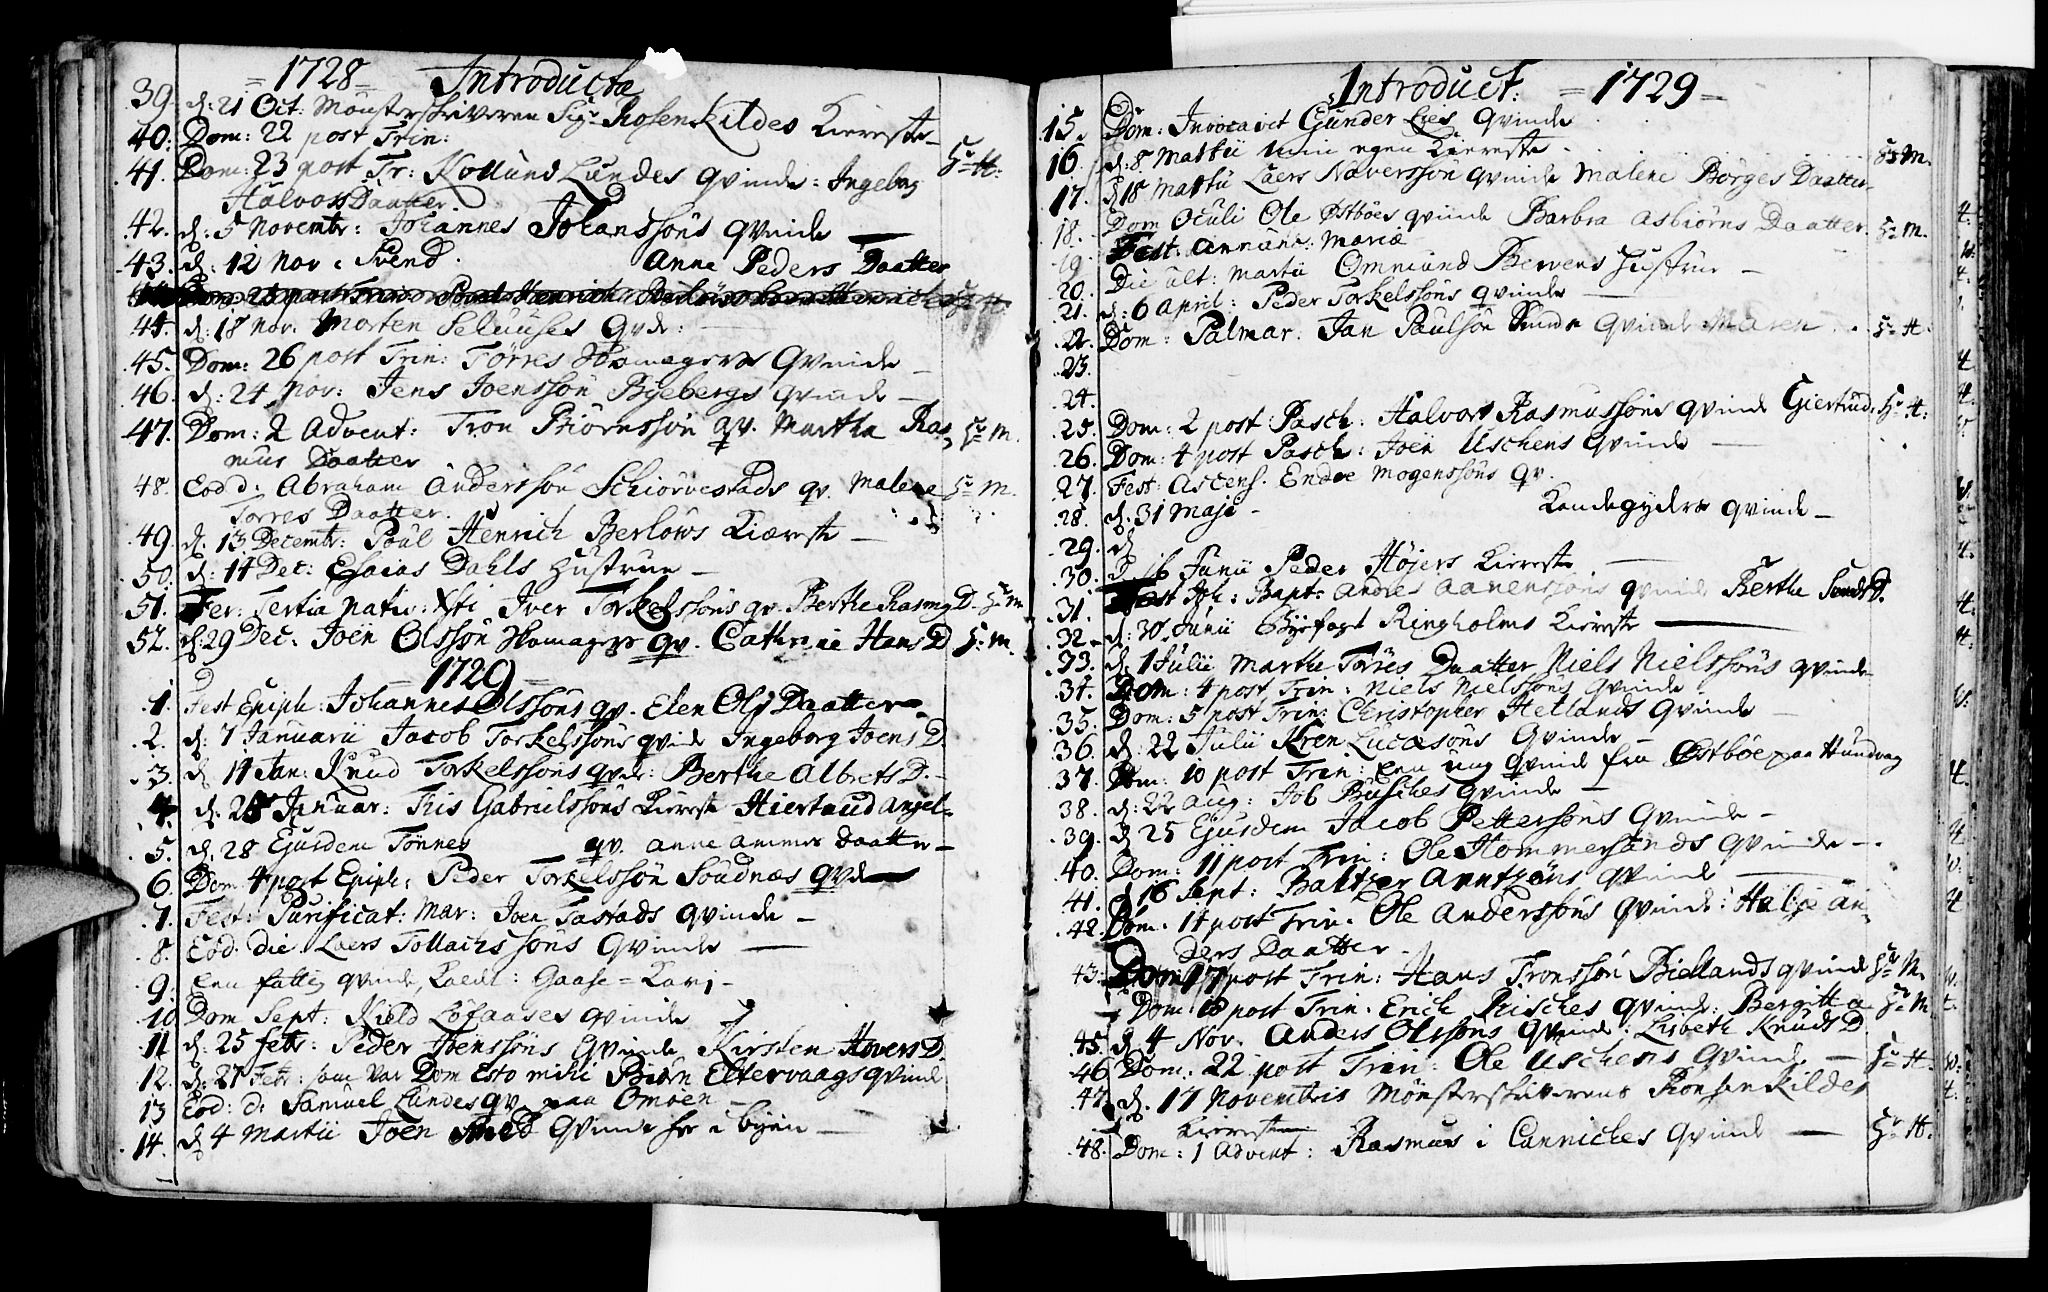 = 1728 = Introductæ
39. d: 21 Oct: Mönsterskriveren Sigr Rosenkildes Kiereste
40. Dom: 22 post Trin:
41. Dom: 23 post Tr: Kollund Lundes qvinde: Ingeborg
Halvors Daatter
42. d: 5 Novembr: Johannes Johanssöns qvinde —
43. d: 12 Nov: Svend. Anne Peders Daatter
44. d: 18 Nov. Morten Qvde: —
45. Dom: 26 post Trin: Törres Skomagers Qvinde —
46. d: 24 Nov: Jens Joenssön Byebergs qvinde —
47. Dom: 2 Advent: Tron Biörnssön qv. Martha Ras= 5r M.
mus Daatter
48. Eod d: Abraham Anderssön Schiörvestads qv. Malene 5r M.
Torres Daatter.
49. d. 13 Decembr: Poul Henrich Berlows Kiæreste —
50. d: 14 Dec: Esaias Dahls Hustrue —
51. Fer: Tertia Nativ: Xsti Iver Torkelssöns qv. Berthe Rasmg D. 5r M
52. d: 29 Dec: Joen Olssön Skomager qv. Cathrine Hans D 5r M.
= 1729 =
1. Fest Epiph: Johannes Olssöns qv. Elen Ols Daatter.
2. d: 7 Januarii Jacob Torkelssöns qvinde Ingeborg Joens D.
3. d 14 Jan: Knud Torkelssöns qvde: Berthe Albrets D. —
4. d. 28 Januar: Gabrielssöns Kiereste Angel-
5. d. 28 Ejusdem Tönnes qv. Anne Ammes Daatter —
6. Dom 4 post Epiph: Peder Torkelssön Soudnæs qvde —
7. Fest: Purificat: Mar: Joen Tastads qvinde —
8. Eod: die Laers Tollachssöns qvinde —
9. Een fattig qvinde kaldt: Gaase = Kari —
10 Dom Sept: Kield Löfaases qvinde
11 d: 25 Febr: Peder Joenssöns Qvinde Kirsten Hovers D.
12. d: 27 Febr: som var Dom Esto mihi Biörn Eltervaags qvinde
13 Eod: d: Samuel Lundes qv paa Omöen —
14. d 4 Martii Joen Smed Qvinde her i byen —
Introduct: = 1729 =
15. Dom: Invocavit Gunder Lies Qvinde
16. d: 8 Martii min egen Kiereste 5r M.
17. d 18 Martii Laers Naverssön qvinde Malene Börges Daatter
18. Dom Oculi Ole Östböes qvinde Barbra Asbiörns Daatter. 5r M.
19 Fest: Annunc: Mariæ
20. Die ult: Martii Ommund Bervens Hustrue —
21. d: 6 April: Peder Torkelssöns qvinde —
22. Dom: Palmar. Jan Paulsön Sunde Qvinde Maren 5r H.
23.
24.
25. Dom: 2 post Pasch: Halvor Rasmussöns qvinde Giertrud. 5r H:
26. Dom: 4 post Pasch: Joen Uschens Qvinde —
27. Fest: Ascens. Endre Mogenssöns qv.
28. d. 31 Maji — Kandegyders qvinde —
29. d
30. d 16 Junii Peder Höjers Kiereste —
31. Fest Joh: Bapt: Andres Aanenssöns qvinde Berthe Sunds D.
32. d: 30 Junii Byefogt Ringholms Kiereste —
33. d: 1 Julii Marthe Törres Daatter Niels Nielssöns qvinde
34. Dom: 4 post Trin: Niels Nielssöns qvinde
35. Dom: 5 post Trin: Christopher Hetlands qvinde —
36. d: 22 Julii Kren Lucæsöns Qvinde —
37. Dom: 10 post Trin: Een ung qvinde fra Östböe paa Hundvog
38. d: 22 Aug: Job Busches qvinde —
39. d 25 Ejusdem Jacob Pettersöns qvinde —
40. Dom: 11 post Trin: Ole Hommersands qvinde —
41. d 16 Sept: Baltzer Arntzöns qvinde —
42. Dom: 14 post Trin. Ole Anderssöns qvinde: An=
ders Daatter
43. Dom 17 post Trin: Hans Tronssön Biellands qvinde 5r M.
Dom: 18 post Trin: Erich Risches qvinde: Bergitta 5r M
45. d 4 Nov. Anders Olssöns qvinde: Lisbeth Knuds D.
46 Dom. 22 post Trin: Ole Uschens qvinde — 5r H.
47. d. 17 Novembris Mönsterskriverens Ronsenkildes
Kiereste
48. Dom: 1 Advent: Rasmus i Cannickes Qvinde — 5r H.